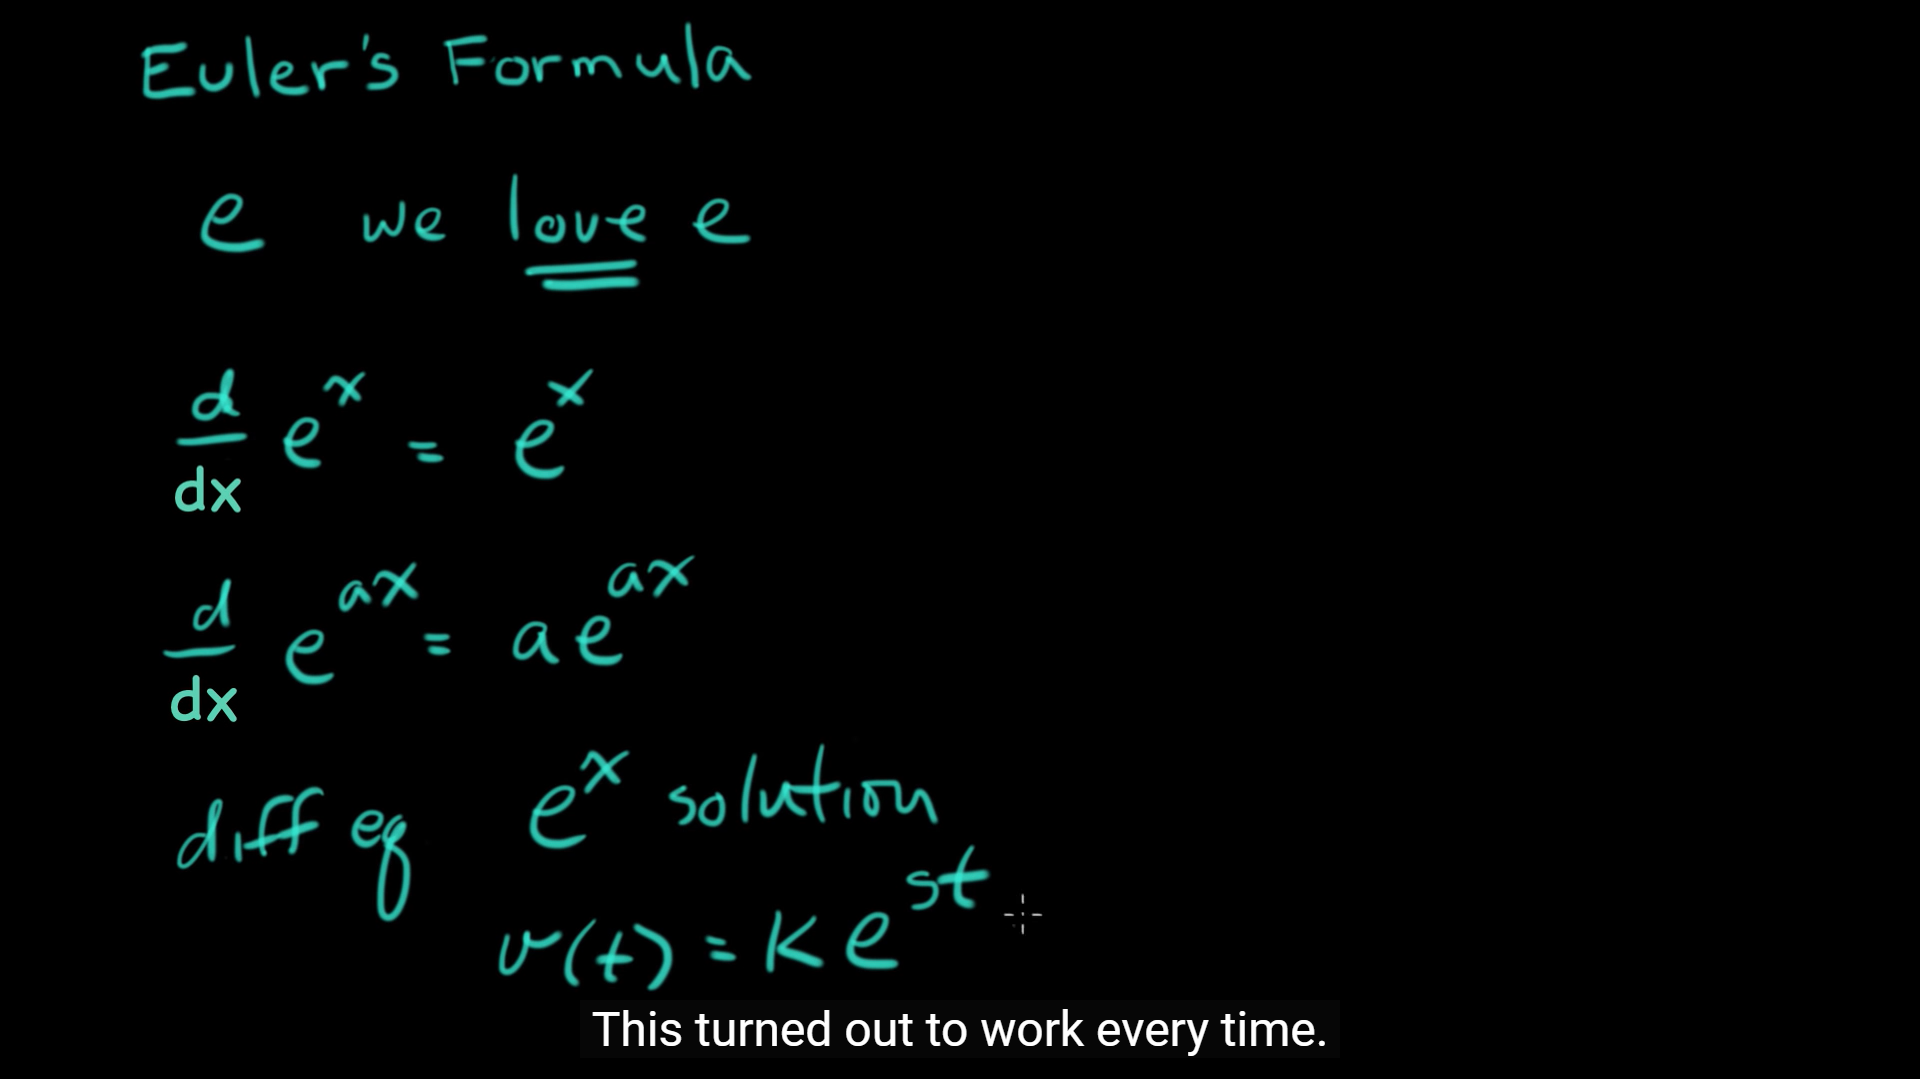 Euler's Formula
e we love e
d/dx e^x = e^x
d/dx e^ax = a e^ax
diff eq e^x solution
v(t) = K e^st
This turned out to work every time.